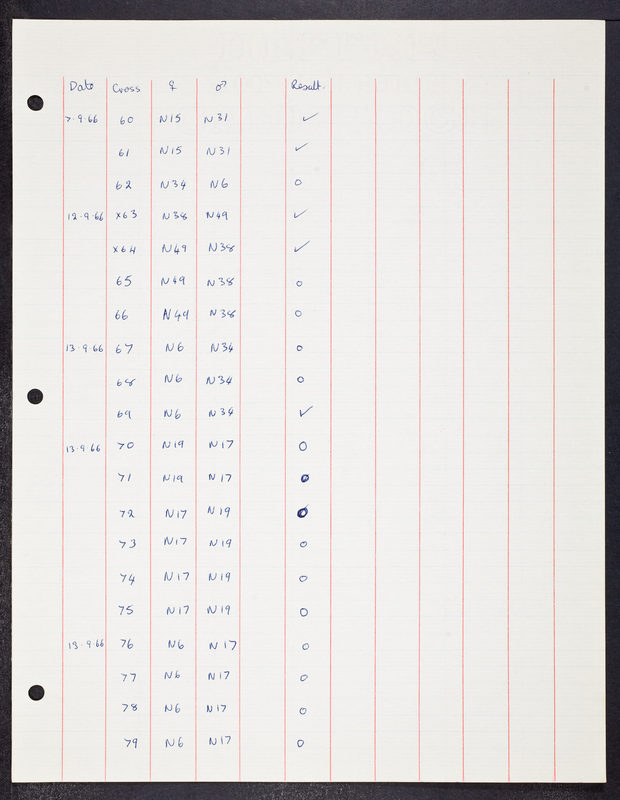 Date Cross ♀ ♂ Result.
7.9.66 60 N15 N31 ✓
61 N15 N31 ✓
62 N34 N6 0
12.9.66 x63 N38 N49 ✓
x64 N49 N38 ✓
65 N49 N38 0
66 N49 N38 0
13.9.66 67 N6 N34 0
68 N6 N34 0
69 N6 N34 ✓
13.9.66 70 N19 N17 0
71 N19 N17 0
72 N17 N19 0
73 N17 N19 0
74 N17 N19 0
75 N17 N19 0
13.9.66 76 N6 N17 0
77 N6 N17 0
78 N6 N17 0
79 N6 N17 0